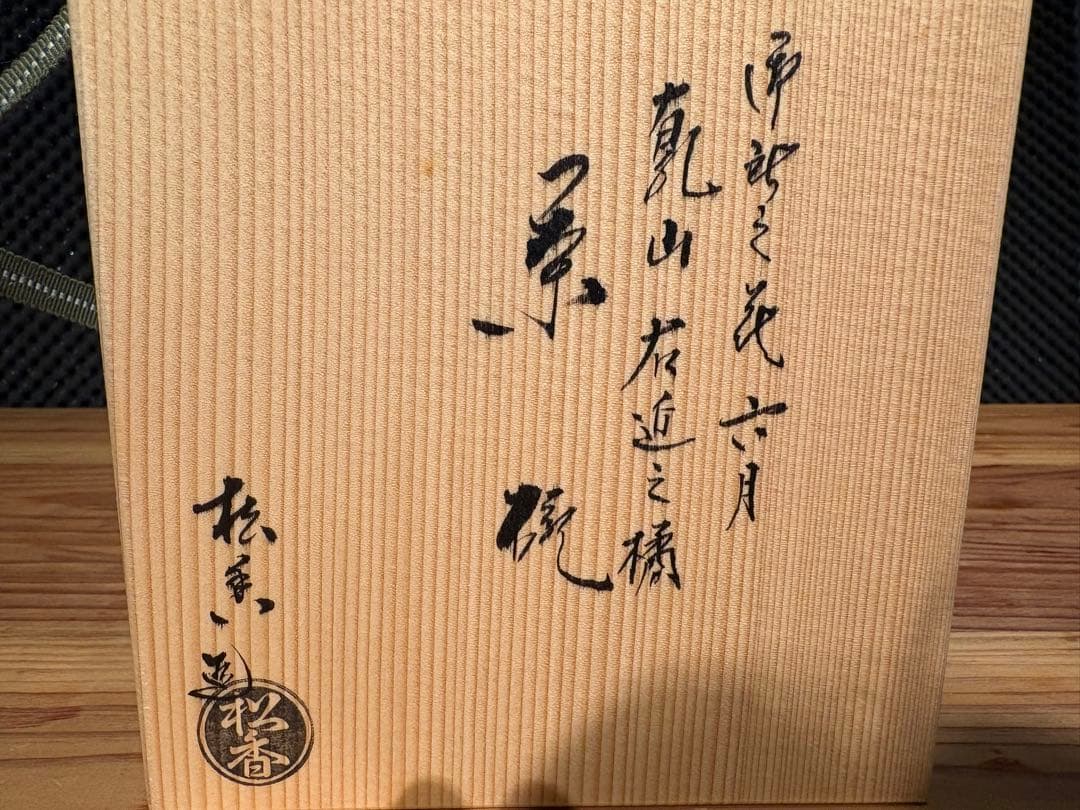 御所之花 六月
乾山 右近之橘
茶碗
松香造
松香